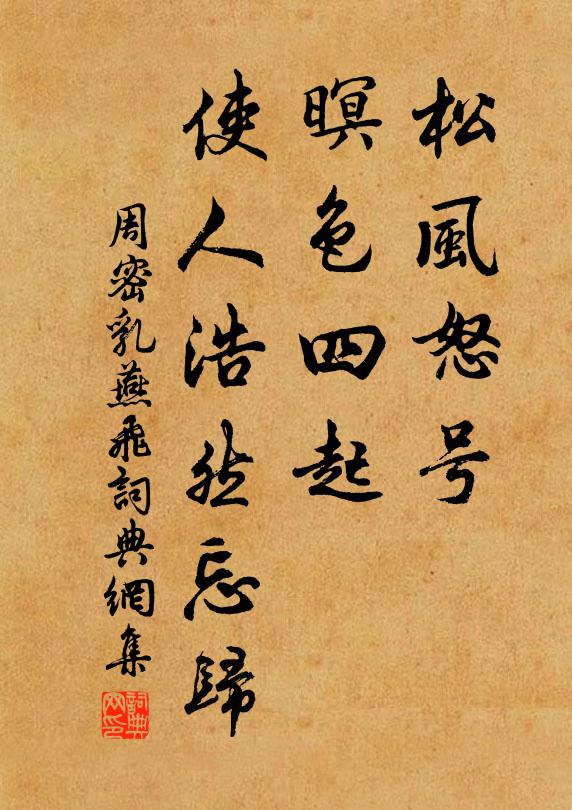 松風怒号
暝色四起
使人浩然忘歸
周密乳燕飛詞典網集
詞典网印